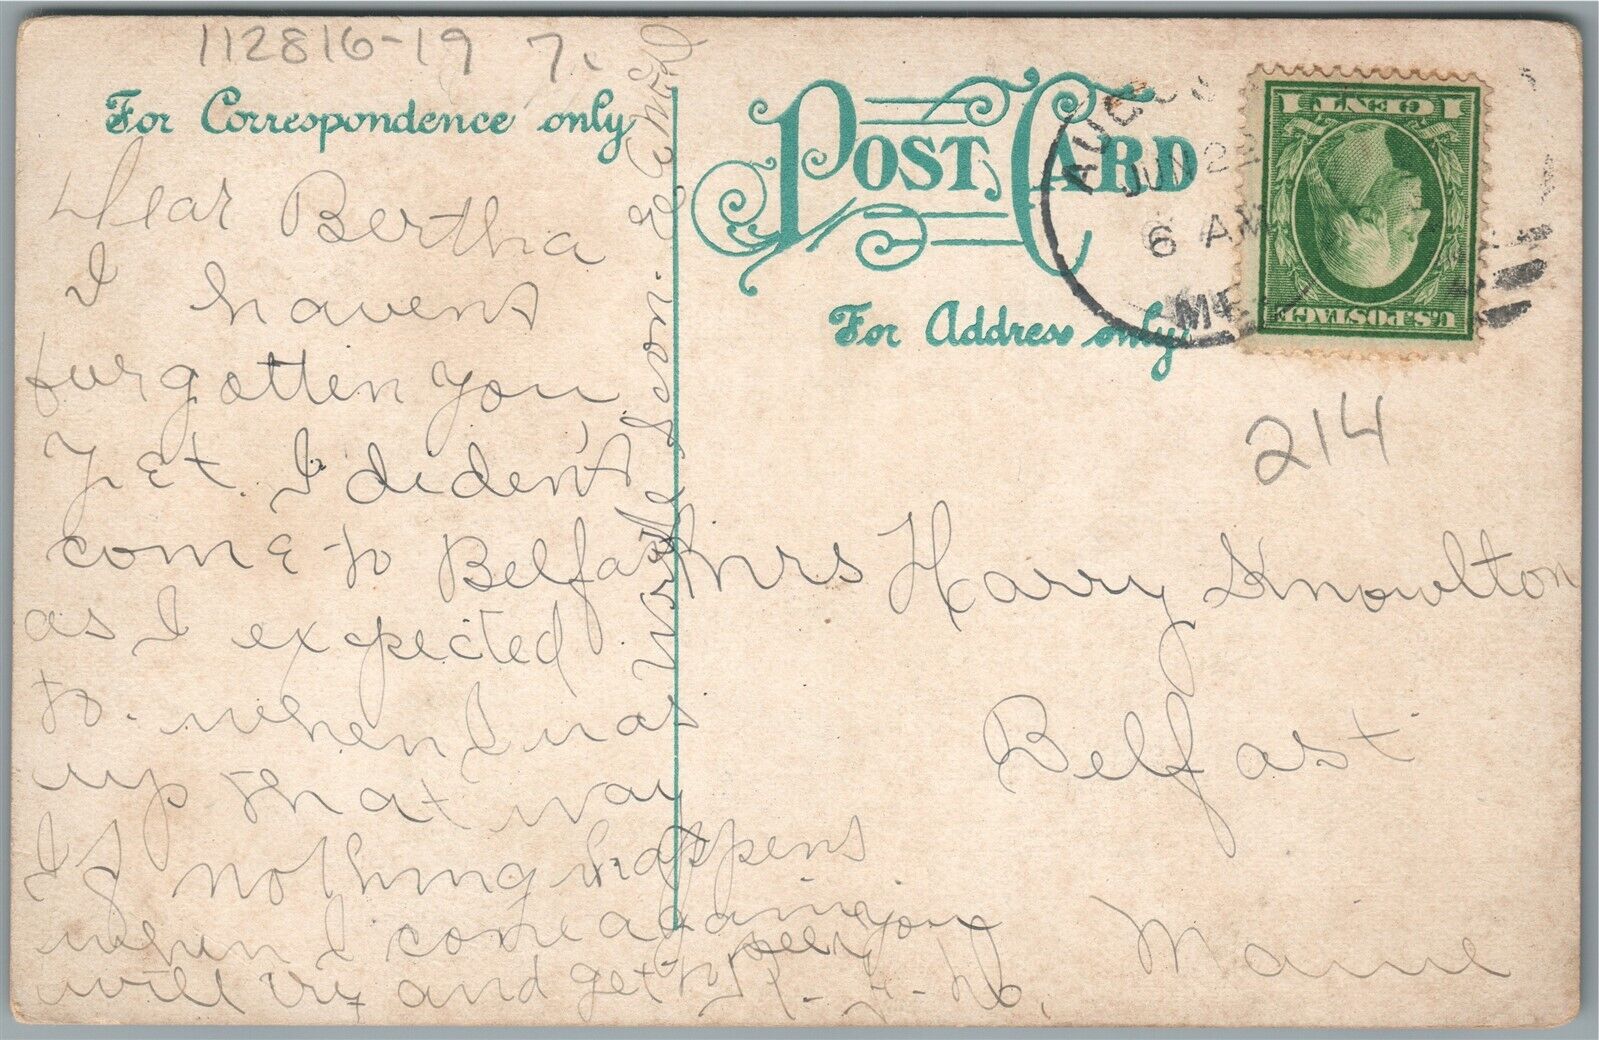 112816-19 7.
For Correspondence only
POST CARD
For Address only
AUGUSTA
JUN 2
6 AM
ME.
1 CENT 1
U.S. POSTAGE
214
Dear Bertha
I havent
furgotten you
yet. I diden't
come to Belfast
as I expected
to. when I was
up that way
If nothing happens
when I come again
will try and get to see you
write soon.
Mrs Harry Knowlton
Belfast
Maine
R. F. D.